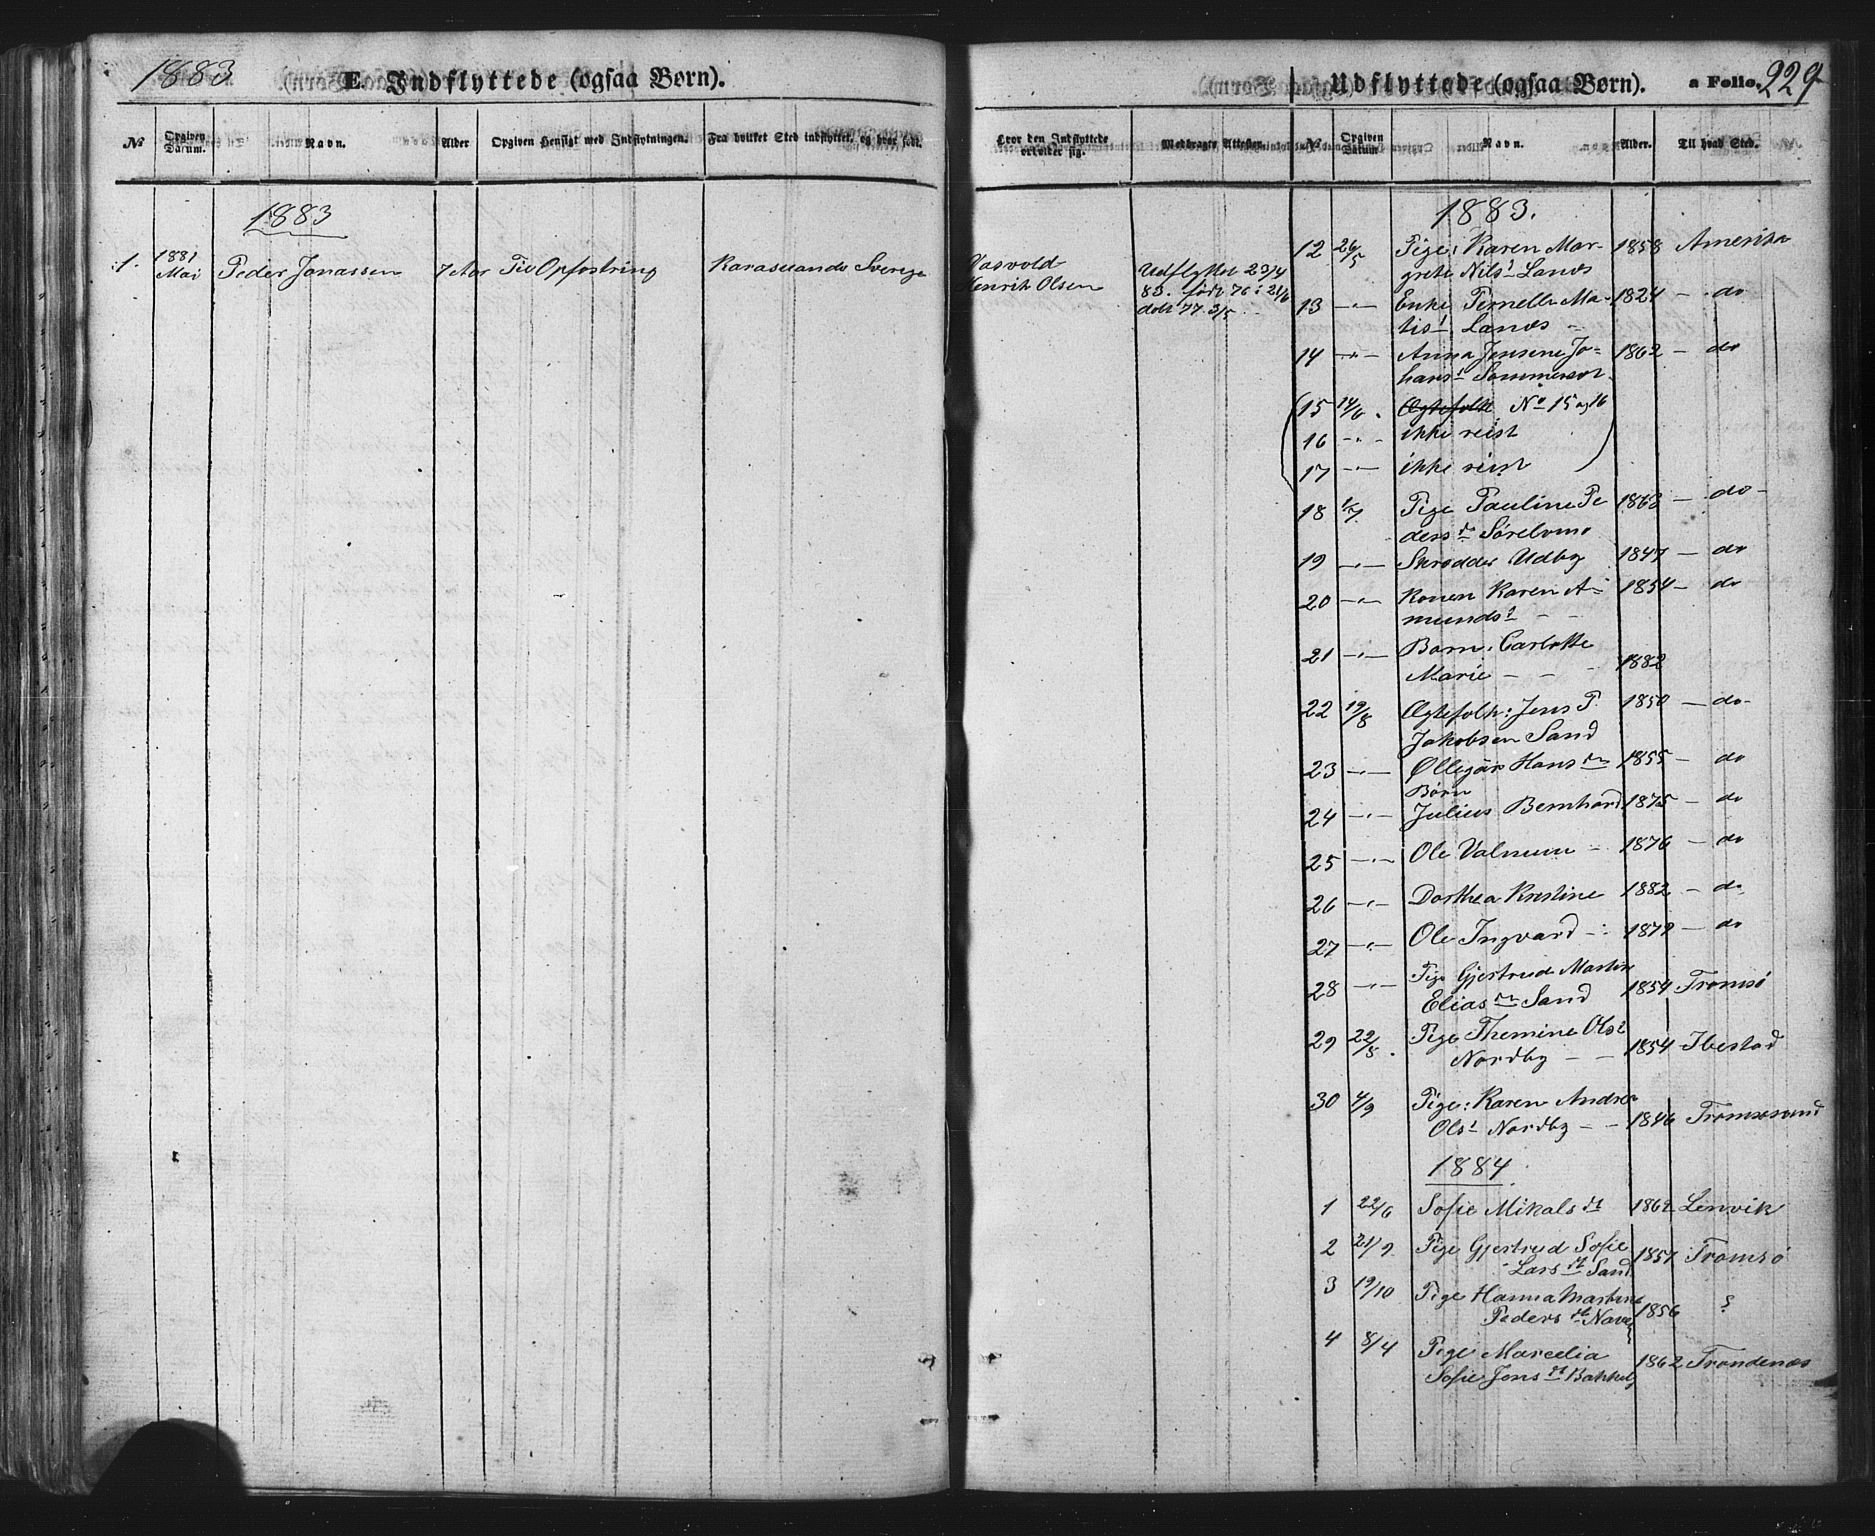 1883
E. Indflyttede (ogsaa Børn).
№ Opgiven Datum. Navn. Alder Opgiven Hensigt med Indflytningen. Fra hvilket Sted indflyttet, og hvor født.
1883
1. 1881 Mai Peder Jonassen 7 Aar Til Opfostring Karasuando Sverige
Udflyttede (ogsaa Børn). a Folio. 229
Hvor den Indflyttede opholder sig. Medbragte Attester. № Opgiven Datum Navn. Alder. Til hvad Sted.
Vasvold
Henrik Olsen
Udflyttet 23/4
83. født 76 i 21/6
døbt 77 3/5
1883.
12 26/5 Pige: Karen Mar- 1858 Amerika
grete Nilsd Lanes
13 -"- Enke Pernelle Ma- 1824 - do
tisd Lanes -
14 -"- Anna Jensine Jo- 1862 - do
hansd Sommersæt
15 14/6. Ægtefolk No 15 og 16
16 -"- ikke reist
17 -"- ikke reist
18 1/7. Pige Pauline Pe 1863 - do -
dersdr Sørelvmo
19 -"- Skrædder Udby 1847 - do
20 -"- Konen Karen A- 1854 - do
mundsd - -
21 -"- Barn: Carlotte
Marie - - - 1882
22 19/8 Ægtefolk: Jens P. 1850 - do-
Jakobsen Sand
23 -"- Øllegár Hansdr 1855 - do
Børn
24 -"- Julius Bernhard 1875 - do
25 -"- Ole Valmum - 1876 - do
26 -"- Dorthea Kristine 1882 - do
27 -"- Ole Ingvard - 1879 - do
28 -"- Pige Gjertrud Martine
Eliasdr Sand 1854 Tromsø
29 22/8. Pige Themine Olsd
Nordby - - 1854 Ibestad
30 4/9 Pige: Karen Andrea
Olsd Nordby - - 1846 Tromsøsund
1884.
1 22/6 Sofie Mikalsdt 1862 Lenvik
2 21/9 Pige Gjertrud Sofie 1857 Tromsø
Larsdt Sand
3 19/10 Pige Hanna Martine
Pedersdt Naven 1856 ?
4 8/4 Pige Marcelia
Sofie Jensdt Bakkeby 1862 Trondenæs